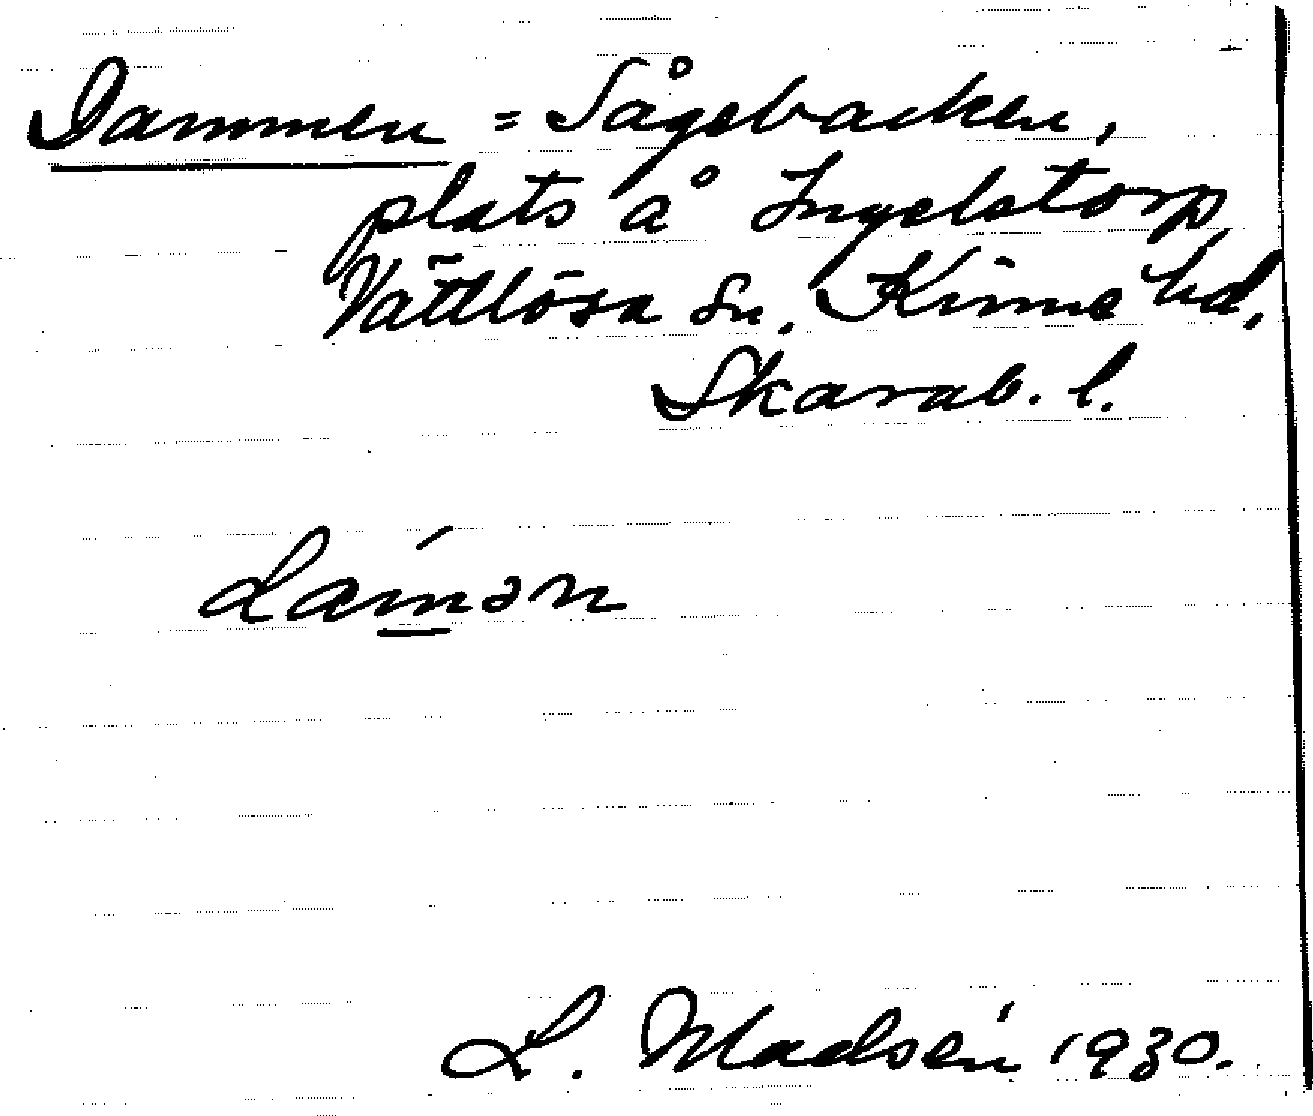 Dammen = Sågebacken,
plats å Ingelstorp
Vättlösa sn, Kinne hd,
Skarab. l.
L. Madsén 1930.